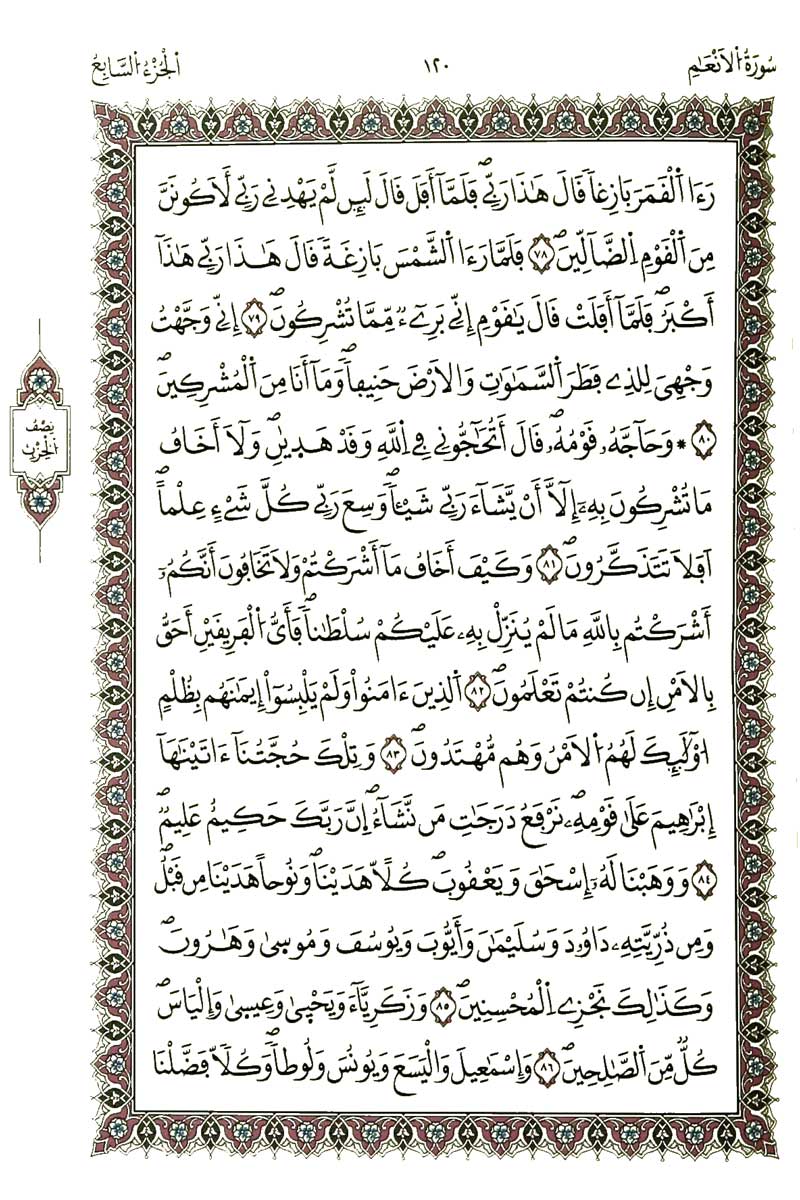 سُورَةُ الْأَنْعَامِ
١٢٠
الْجُزْءُ السَّابِعُ
رَءَا اَ۬لْقَمَرَ بَازِغاٗ قَالَ هَٰذَا رَبِّےۖ فَلَمَّآ أَفَلَ قَالَ لَئِن لَّمْ يَهْدِنِے رَبِّے لَأَكُونَنَّ
مِنَ اَ۬لْقَوْمِ اِ۬لضَّآلِّينَۖ ٧٨ فَلَمَّا رَءَا اَ۬لشَّمْسَ بَازِغَةٗ قَالَ هَٰذَا رَبِّے هَٰذَآ
أَكْبَرُۖ فَلَمَّآ أَفَلَتْ قَالَ يَٰقَوْمِ إِنِّے بَرِےٓءٞ مِّمَّا تُشْرِكُونَۖ ٧٩ إِنِّے وَجَّهْتُ
وَجْهِيَ لِلذِے فَطَرَ اَ۬لسَّمَٰوَٰتِ وَالْأَرْضَ حَنِيفاٗۖ وَمَآ أَنَا مِنَ اَ۬لْمُشْرِكِينَۖ
٨٠ * وَحَآجَّهُۥ قَوْمُهُۥۖ قَالَ أَتُحَٰٓجُّونِے فِے اِ۬للَّهِ وَقَدْ هَدَىٰنِۖ وَلَآ أَخَافُ
مَا تُشْرِكُونَ بِهِۦٓ إِلَّآ أَنْ يَّشَآءَ رَبِّے شَيْـٔاٗۖ وَسِعَ رَبِّے كُلَّ شَےْءٍ عِلْماًۖ
اَفَلَا تَتَذَكَّرُونَۖ ٨١ وَكَيْفَ أَخَافُ مَآ أَشْرَكْتُمْ وَلَا تَخَافُونَ أَنَّكُمُۥٓ
أَشْرَكْتُم بِاللَّهِ مَا لَمْ يُنَزِّلْ بِهِۦ عَلَيْكُمْ سُلْطَٰناٗۖ فَأَيُّ اُ۬لْفَرِيقَيْنِ أَحَقُّ
بِالْأَمْنِ إِن كُنتُمْ تَعْلَمُونَۖ ٨٢ اَ۬لذِينَ ءَامَنُواْ وَلَمْ يَلْبِسُوٓاْ إِيمَٰنَهُم بِظُلْمٍ
ا۟وْلَٰٓئِكَ لَهُمُ اُ۬لْأَمْنُ وَهُم مُّهْتَدُونَۖ ٨٣ وَتِلْكَ حُجَّتُنَآ ءَاتَيْنَٰهَآ
إِبْرَٰهِيمَ عَلَىٰ قَوْمِهِۦۖ نَرْفَعُ دَرَجَٰتِ مَن نَّشَآءُۖ اِنَّ رَبَّكَ حَكِيمٌ عَلِيمٞۖ
٨٤ وَوَهَبْنَا لَهُۥٓ إِسْحَٰقَ وَيَعْقُوبَۖ كُلّاً هَدَيْنَاۖ وَنُوحاً هَدَيْنَا مِن قَبْلُۖ
وَمِن ذُرِّيَّتِهِۦ دَاوُۥدَ وَسُلَيْمَٰنَ وَأَيُّوبَ وَيُوسُفَ وَمُوسَىٰ وَهَٰرُونَۖ
وَكَذَٰلِكَ نَجْزِے اِ۬لْمُحْسِنِينَۖ ٨٥ وَزَكَرِيَّآءَ وَيَحْيَىٰ وَعِيسَىٰ وَإِلْيَاسَۖ
كُلّٞ مِّنَ اَ۬لصَّٰلِحِينَۖ ٨٦ وَإِسْمَٰعِيلَ وَالْيَسَعَ وَيُونُسَ وَلُوطاٗۖ وَكُلّاٗ فَضَّلْنَا
نِصْفُ
الْحِزْبِ